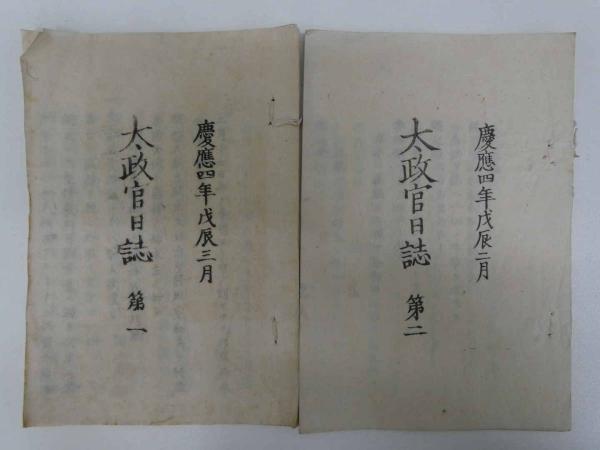 慶應四年戊辰三月
太政官日誌 第一
慶應四年戊辰二月
太政官日誌 第二